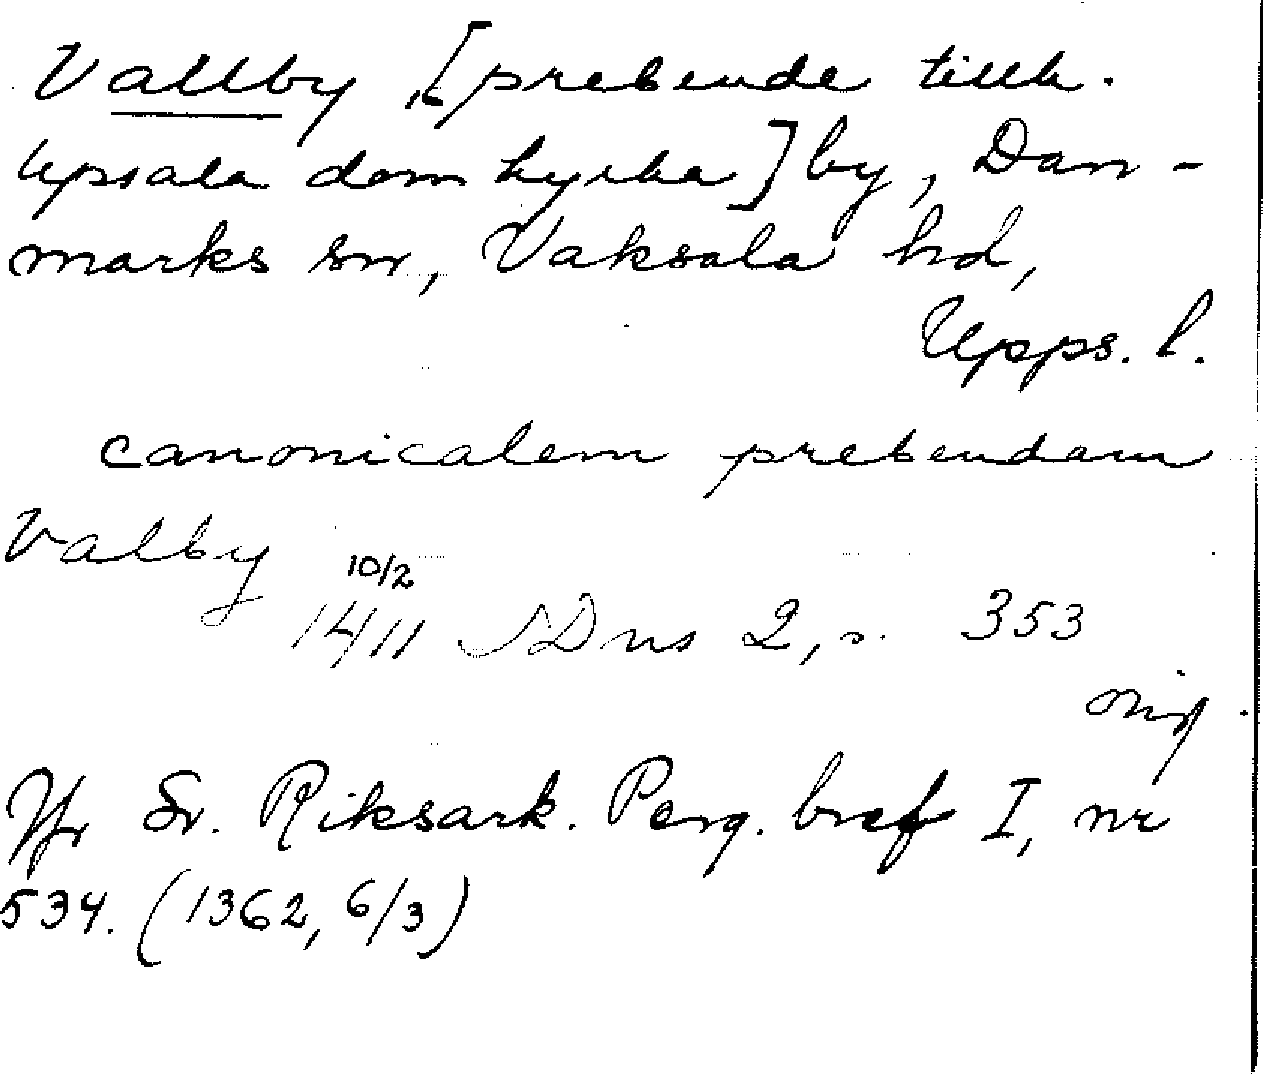 Vallby, [prebende tillh.
Upsala domkyrka] by, Dan-
marks sn, Vaksala hd,
Upps. l.
canonicalem prebendam
Valby
10/2
1411 SDns 2, s. 353
orig.
Jfr Sv. Riksark. Perg. bref I, nr
534. (1362, 6/3)